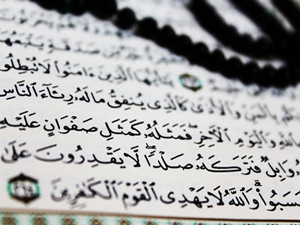 صَدَقَةٍ يَتْبَعُهَا
يَٰٓأَيُّهَا ٱلَّذِينَ ءَامَنُوا۟ لَا تُبْطِلُوا۟
كُم بِٱلْمَنِّ وَٱلْأَذَىٰ كَٱلَّذِى يُنفِقُ مَالَهُۥ رِئَآءَ ٱلنَّاسِ
بِٱللَّهِ وَٱلْيَوْمِ ٱلْءَاخِرِ ۖ فَمَثَلُهُۥ كَمَثَلِ صَفْوَانٍ عَلَيْهِ
وَابِلٌ فَتَرَكَهُۥ صَلْدًا ۖ لَّا يَقْدِرُونَ عَلَىٰ
سَبُوا۟ ۗ وَٱللَّهُ لَا يَهْدِى ٱلْقَوْمَ ٱلْكَٰفِرِينَ ٢٦٤